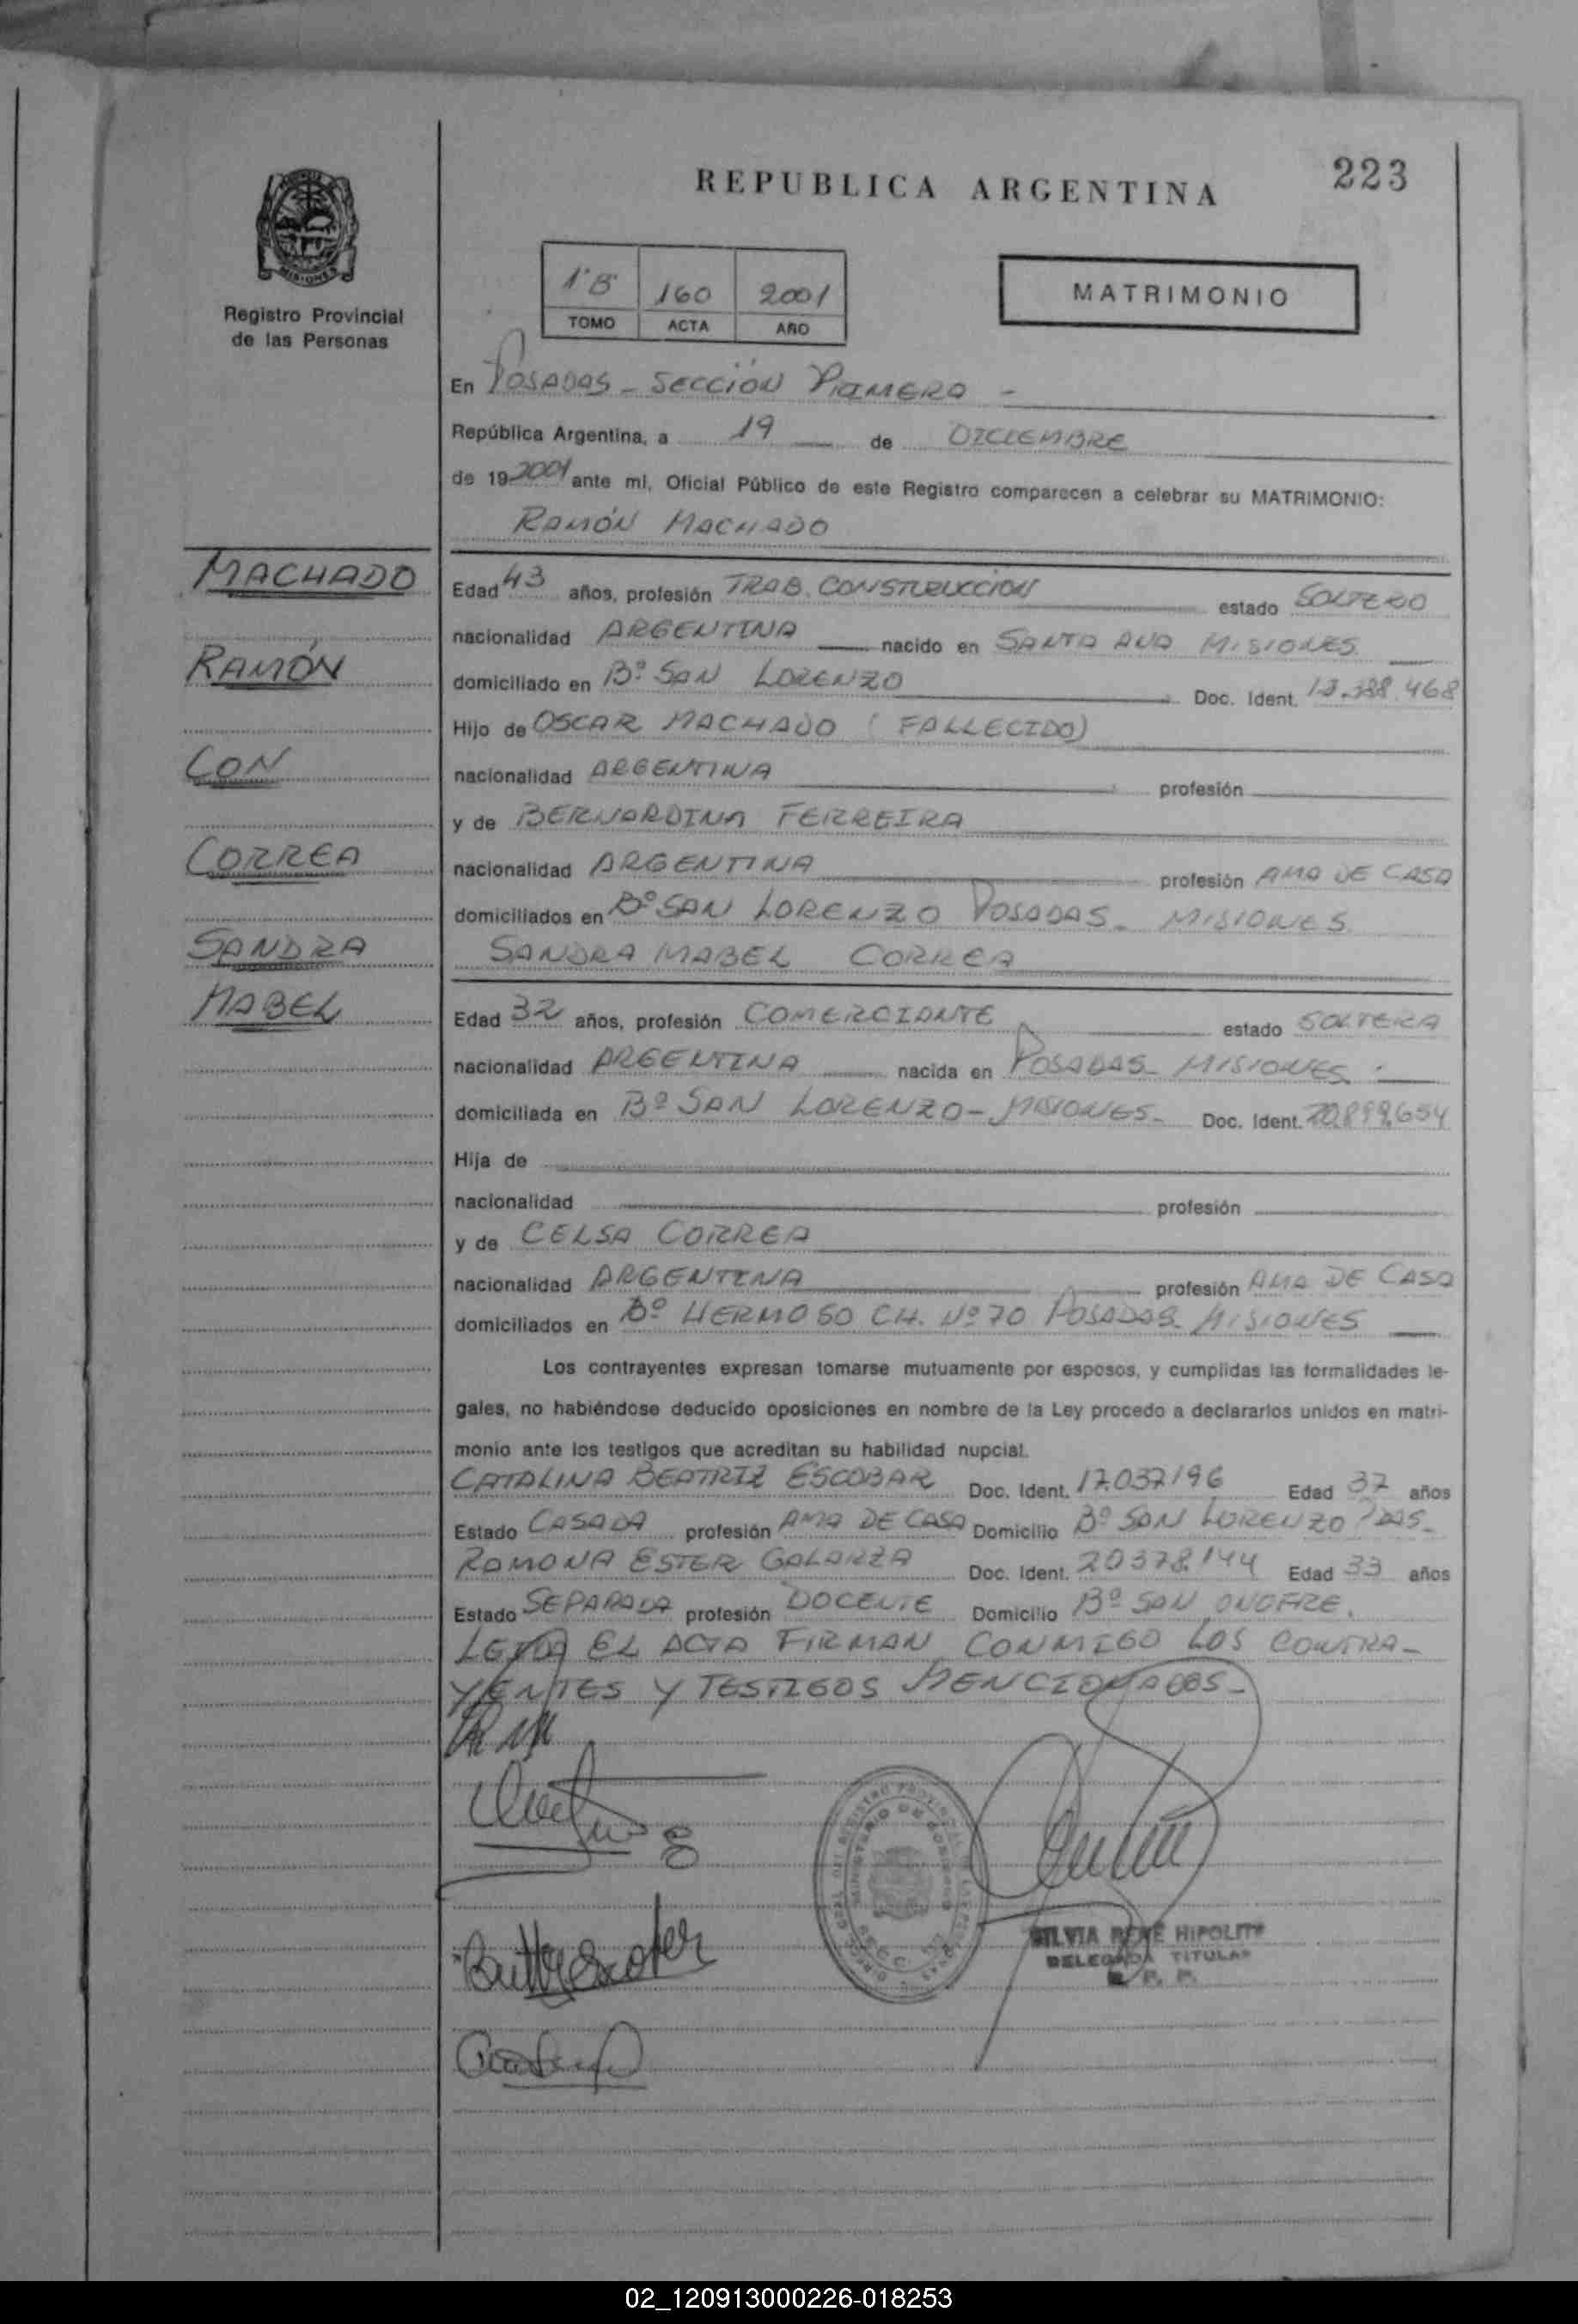 223
REPUBLICA ARGENTINA
MISIONES
Registro Provincial
de las Personas
1ºB 160 2001
TOMO ACTA AÑO
MATRIMONIO
En POSADAS - SECCIÓN PRIMERA -
República Argentina, a 19 de DICIEMBRE
de 19 2001 ante mi, Oficial Público de este Registro comparecen a celebrar su MATRIMONIO:
RAMÓN MACHADO
MACHADO
RAMÓN
CON
CORREA
SANDRA
MABEL
Edad 43 años, profesión TRAB. CONSTRUCCION estado SOLTERO
nacionalidad ARGENTINA nacido en SANTA ANA MISIONES
domiciliado en Bº SAN LORENZO Doc. Ident. 13.388.468
Hijo de OSCAR MACHADO (FALLECIDO)
nacionalidad ARGENTINA profesión
y de BERNARDINA FERREIRA
nacionalidad ARGENTINA profesión AMA DE CASA
domiciliados en Bº SAN LORENZO POSADAS - MISIONES
SANDRA MABEL CORREA
Edad 32 años, profesión COMERCIANTE estado SOLTERA
nacionalidad ARGENTINA nacida en POSADAS - MISIONES
domiciliada en Bº SAN LORENZO - MISIONES - Doc. Ident. 20.899.654
Hija de
nacionalidad profesión
y de CELSA CORREA
nacionalidad ARGENTINA profesión AMA DE CASA
domiciliados en Bº HERMOSO CH. Nº 70 POSADAS MISIONES
Los contrayentes expresan tomarse mutuamente por esposos, y cumplidas las formalidades le-
gales, no habiéndose deducido oposiciones en nombre de la Ley procedo a declararlos unidos en matri-
monio ante los testigos que acreditan su habilidad nupcial.
CATALINA BEATRIZ ESCOBAR Doc. Ident. 17.037.196 Edad 37 años
Estado CASADA profesión AMA DE CASA Domicilio Bº SAN LORENZO PDAS.
RAMONA ESTER GALARZA Doc. Ident. 20.378.144 Edad 33 años
Estado SEPARADA profesión DOCENTE Domicilio Bº SAN ONOFRE.
LEIDA EL ACTA FIRMAN CONMIGO LOS CONTRA-
YENTES Y TESTIGOS MENCIONADOS -
SILVIA RENE HIPOLITO
DELEGADA TITULAR
R. P. P.
02_120913000226-018253